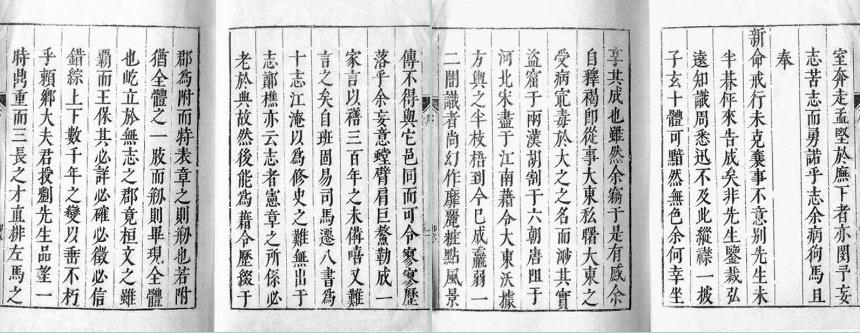 室奔走孟堅於廡下者亦閔予妄
志苦志而勇諾乎志余病狗馬且
奉
新命戒行未克襄事不意別先生未
半朞伻來告成矣非先生鑒裁弘
遠知識周悉迅不及此縱襟一披
子玄十體可黯然無色余何幸坐
享其成也雖然余竊于是有感余
自釋褐卽從事大東私曙大東之
受病寔毒於大之之名而渉其實
盜窟于兩漢胡割于六朝唐阻于
河北宋盡于江南藉令大東沃據
方輿之半枝梧到今巳成羸弱一
二闇識者尚幻作靡麗粧點風景
傳不得與它邑同而可令寥寥歷
落乎余妄意螳臂肩巨鰲勒成一
家言以藉三百年之未僃嘻又難
言之矣自班固易司馬遷八書為
十志江淹以為修史之難無出于
志鄭樵亦云志者憲章之所係必
老於典故然後能為藉令歷綴于
郡為附而特表章之則𥘉也若附
猶全體之一肢而𥘉則畢現全體
也屹立於無志之郡竟桓文之雖
覇而王保其必詳必確必徵必信
錯綜上下數千年之變以垂不朽
乎賴鄉大夫君授劉先生品望一
時鼑重而三長之才直排左馬之